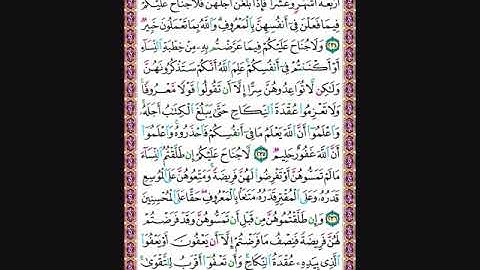 أَرْبَعَةَ أَشْهُرٍ وَعَشْرًا فَإِذَا بَلَغْنَ أَجَلَهُنَّ فَلَا جُنَاحَ عَلَيْكُمْ
فِيمَا فَعَلْنَ فِي أَنْفُسِهِنَّ بِالْمَعْرُوفِ وَاللَّهُ بِمَا تَعْمَلُونَ خَبِيرٌ
﴿٢٣٤﴾ وَلَا جُنَاحَ عَلَيْكُمْ فِيمَا عَرَّضْتُمْ بِهِ مِنْ خِطْبَةِ النِّسَاءِ
أَوْ أَكْنَنْتُمْ فِي أَنْفُسِكُمْ عَلِمَ اللَّهُ أَنَّكُمْ سَتَذْكُرُونَهُنَّ
وَلَٰكِنْ لَا تُوَاعِدُوهُنَّ سِرًّا إِلَّا أَنْ تَقُولُوا قَوْلًا مَعْرُوفًا
وَلَا تَعْزِمُوا عُقْدَةَ النِّكَاحِ حَتَّىٰ يَبْلُغَ الْكِتَابُ أَجَلَهُ
وَاعْلَمُوا أَنَّ اللَّهَ يَعْلَمُ مَا فِي أَنْفُسِكُمْ فَاحْذَرُوهُ وَاعْلَمُوا
أَنَّ اللَّهَ غَفُورٌ حَلِيمٌ ﴿٢٣٥﴾ لَا جُنَاحَ عَلَيْكُمْ إِنْ طَلَّقْتُمُ النِّسَاءَ
مَا لَمْ تَمَسُّوهُنَّ أَوْ تَفْرِضُوا لَهُنَّ فَرِيضَةً وَمَتِّعُوهُنَّ عَلَى الْمُوسِعِ
قَدَرُهُ وَعَلَى الْمُقْتِرِ قَدَرُهُ مَتَاعًا بِالْمَعْرُوفِ حَقًّا عَلَى الْمُحْسِنِينَ
﴿٢٣٦﴾ وَإِنْ طَلَّقْتُمُوهُنَّ مِنْ قَبْلِ أَنْ تَمَسُّوهُنَّ وَقَدْ فَرَضْتُمْ
لَهُنَّ فَرِيضَةً فَنِصْفُ مَا فَرَضْتُمْ إِلَّا أَنْ يَعْفُونَ أَوْ يَعْفُوَ
الَّذِي بِيَدِهِ عُقْدَةُ النِّكَاحِ وَأَنْ تَعْفُوا أَقْرَبُ لِلتَّقْوَىٰ